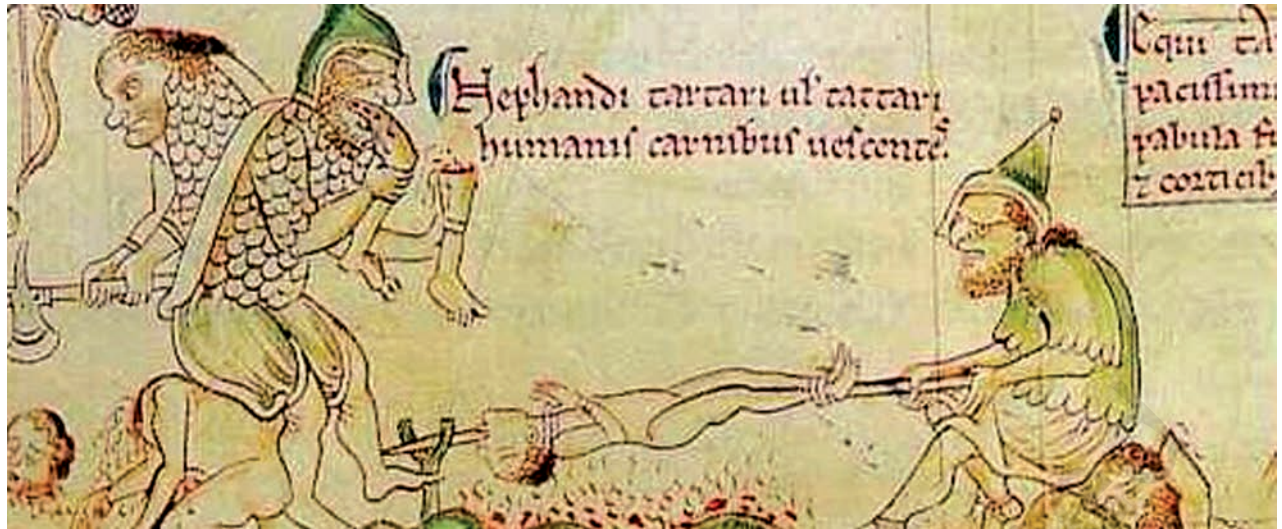 Nephandi tartari ul' tattari
humanis carnibus uescentes.
Equi ta
pacissimi
pabula
⁊ corticib